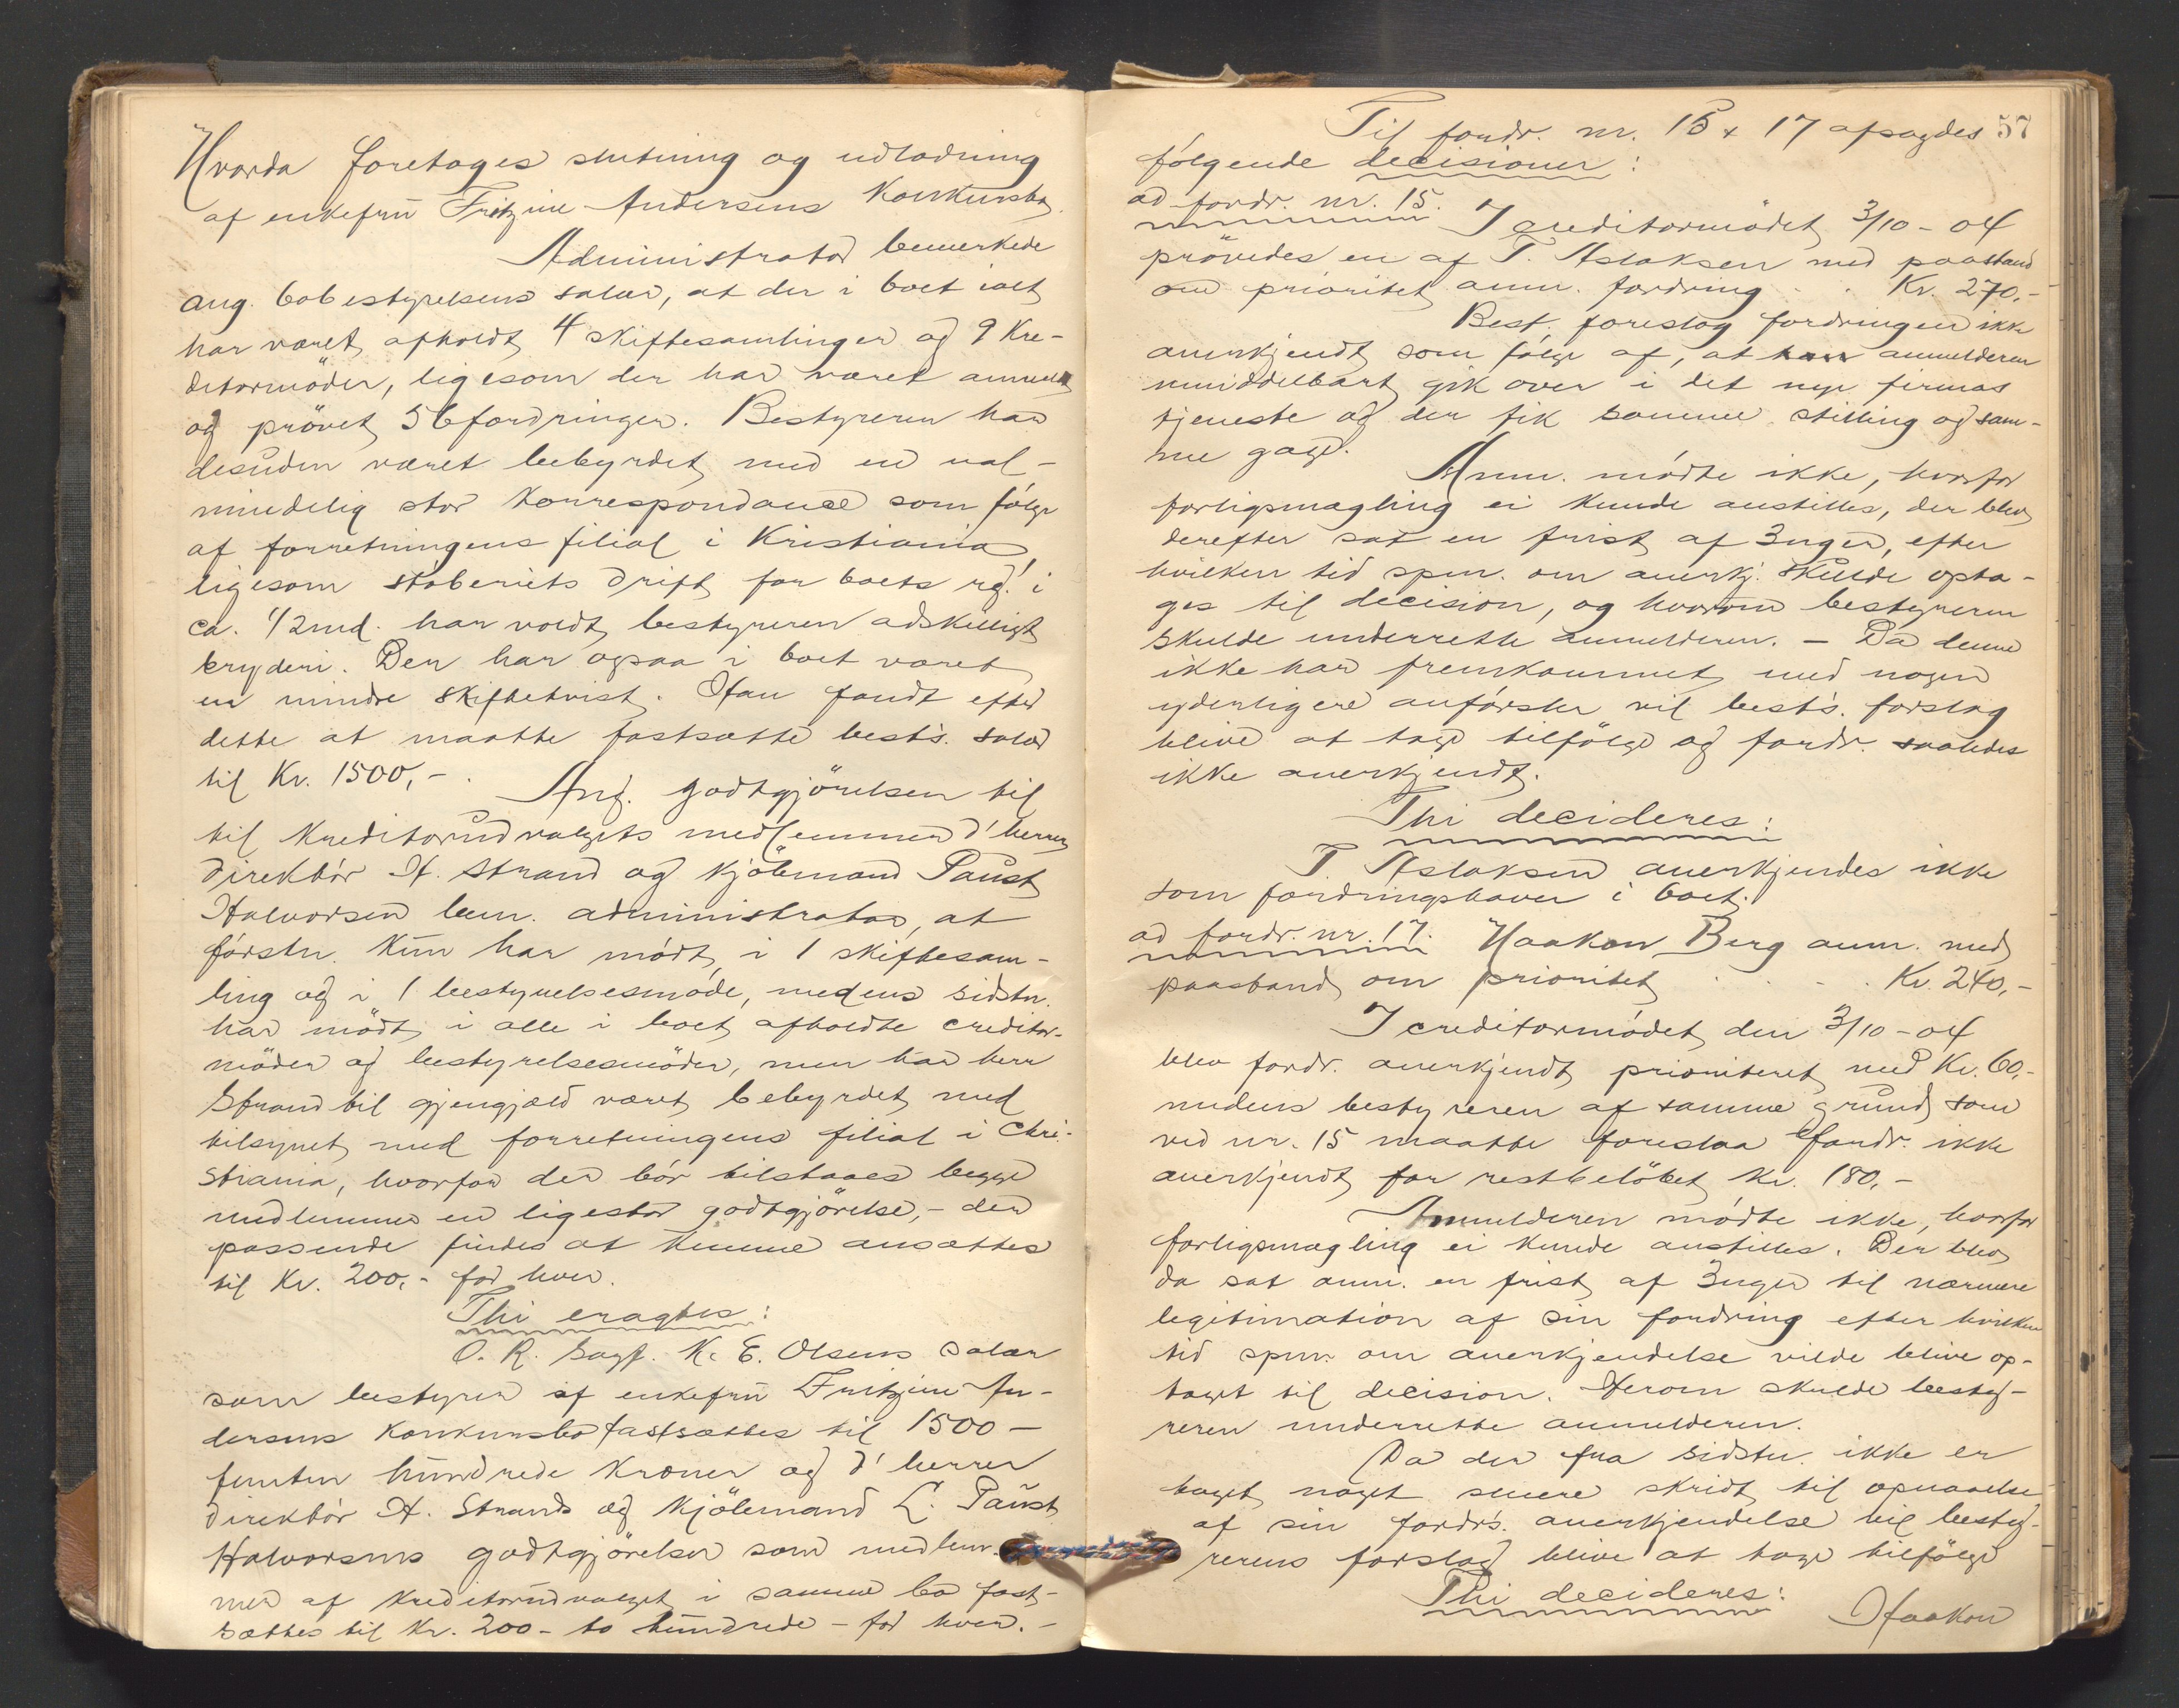 Hvorda foretoges slutning og udlodning
af enkefru Fritzine Andersens Konkursbo.
Administrator bemerkede
ang. bobestyrelsens salær, at der i boet ialt
har været afholdt 4 skiftesamlinger og 9 Kre-
ditormöder, ligesom der har været anmeldt
og prövet 56 fordringer. Bestyreren har
desuden været bebyrdet med en ual-
mindelig stor Korrespondance som fölge
af forretningens filial i Kristiania,
ligesom støberiets drift for boets rg. i
ca. 1/2 md. har voldt bestyreren adskilligt
bryderi. Der har ogsaa i boet været
en mindre skiftetvist. Han fandt efter
dette at maatte fastsætte best's. salær
til Kr. 1500,-.
Ang. godtgjörelsen til
til Kreditorudvalgets medlemmer d'herrer
direktör H. Strand og Kjöbmand Paust
Halvorsen bem. administrator, at
förstn. Kun har mödt i 1 skiftesam-
ling og i 1 bestyrelsesmöde, medens sidstn.
har mödt i alle i boet afholdte creditor-
möder og bestyrelsesmöder, men har herr
Strand til gjengjæld været bebyrdet med
tilsynet med forretningens filial i Chri-
stiania, hvorfor der bör tilstaaes begge
medlemmer en ligestor godtgjörelse, - der
passende findes at kunne ansættes
til Kr. 200,- for hver.
Thi eragtes:
O. R. Sagf. K. E. Olsens salær
som bestyrer af enkefru Fritzine An-
dersens Konkursbo fastsættes til 1500 -
femten hundrede Kroner og d' herrer
direktör H. Strands og Kjöbmand L. Paust
Halvorsens godtgjörelse som medlem-
mer af Kreditorudvalget i samme bo fast-
sættes til Kr. 200 - to hundrede - for hver. -
Til fordr. nr. 15 + 17 afsagdes 57
fölgende decisioner:
ad fordr. nr. 15.
I creditormödet 3/10 - 04
prövedes en af T. Aslaksen med paastand
om prioritet anm. fordring . . Kr. 270,-
Best. foreslog fordringen ikke
anerkjendt som fölge af, at anmelderen
umiddelbart gik over i det nye firmas
tjeneste og der fik samme stilling og sam-
me gage.
Anm. mödte ikke, hvorfor
forligsmægling ei kunde anstilles, der blev
derefter sat en frist af 3 uger, efter
hvilken tid spm. om anerkj. skulde opta-
ges til decision, og hvorom bestyreren
skulde underrette anmelderen. - Da denne
ikke har fremkommet med nogen
yderligere anförsler vil best's. forslag
blive at tage tilfölge og fordr. saaledes
ikke anerkjendt.
Thi decideres:
T. Aslaksen anerkjendes ikke
som fordringshaver i boet.
ad fordr. nr. 17. Haakon Berg anm. med
paastand om prioritet . . . . Kr. 240,-
I creditormödet den 3/10 - 04
blev fordr. anerkjendt prioriteret med Kr. 60,-
medens bestyreren af samme grund som
ved nr. 15 maatte foreslaa fordr. ikke
anerkjendt for restbelöbet Kr. 180,-
Anmelderen mödte ikke, hvorfor
forligsmægling ei kunde anstilles. Der blev
da sat anm. en frist af 3 uger til nærmere
legitimation af sin fordring efter hvilken
tid spm. om anerkjendelse vilde blive op-
taget til decision. Herom skulde besty-
reren underrette anmelderen.
Da der fra sidstn. ikke er
taget noget senere skridt til opnaaelse
af sin fordr's. anerkjendelse vil besty-
rerens forslag blive at tage tilfölge
Thi decideres:
Haakon